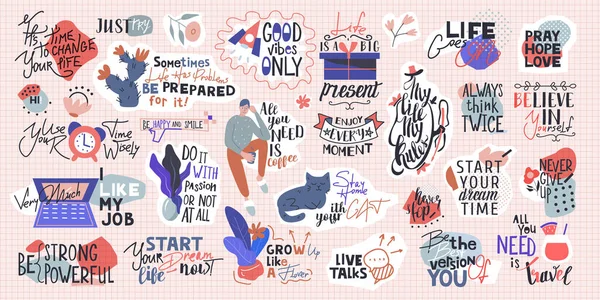 It's
TIME
TO CHANGE
YOUR LIFE
JUST try
Sometimes
Life Has Problems
BE PREPARED
for it!
Good
vibes
ONLY
Life
IS A BIG
present
LIFE
Goes
PRAY
HOPE
LOVE
HI
Use
Your
Time
Wisely
BE HAPPY AND SMILE
All
you
NEED
IS
coffee
ENJOY
EVERY
MOMENT
My
life
My
Rules
ALWAYS
think
TWICE
BELIEVE
IN
Yourself
Very Much
I
LIKE
MY
JOB
DO IT
WITH
PASSION
OR NOT
AT ALL
Stay
Home
with your
CAT
Never
Stop
START
YOUR
dream
TIME
NEVER
GIVE
UP
BE STRONG
POWERFUL
START
Your Dream
life now
GROW Up
Like
A
Flower
LIVE
TALKS
Be the
version Of
YOU
ALL
YOU
NEED
is
travel